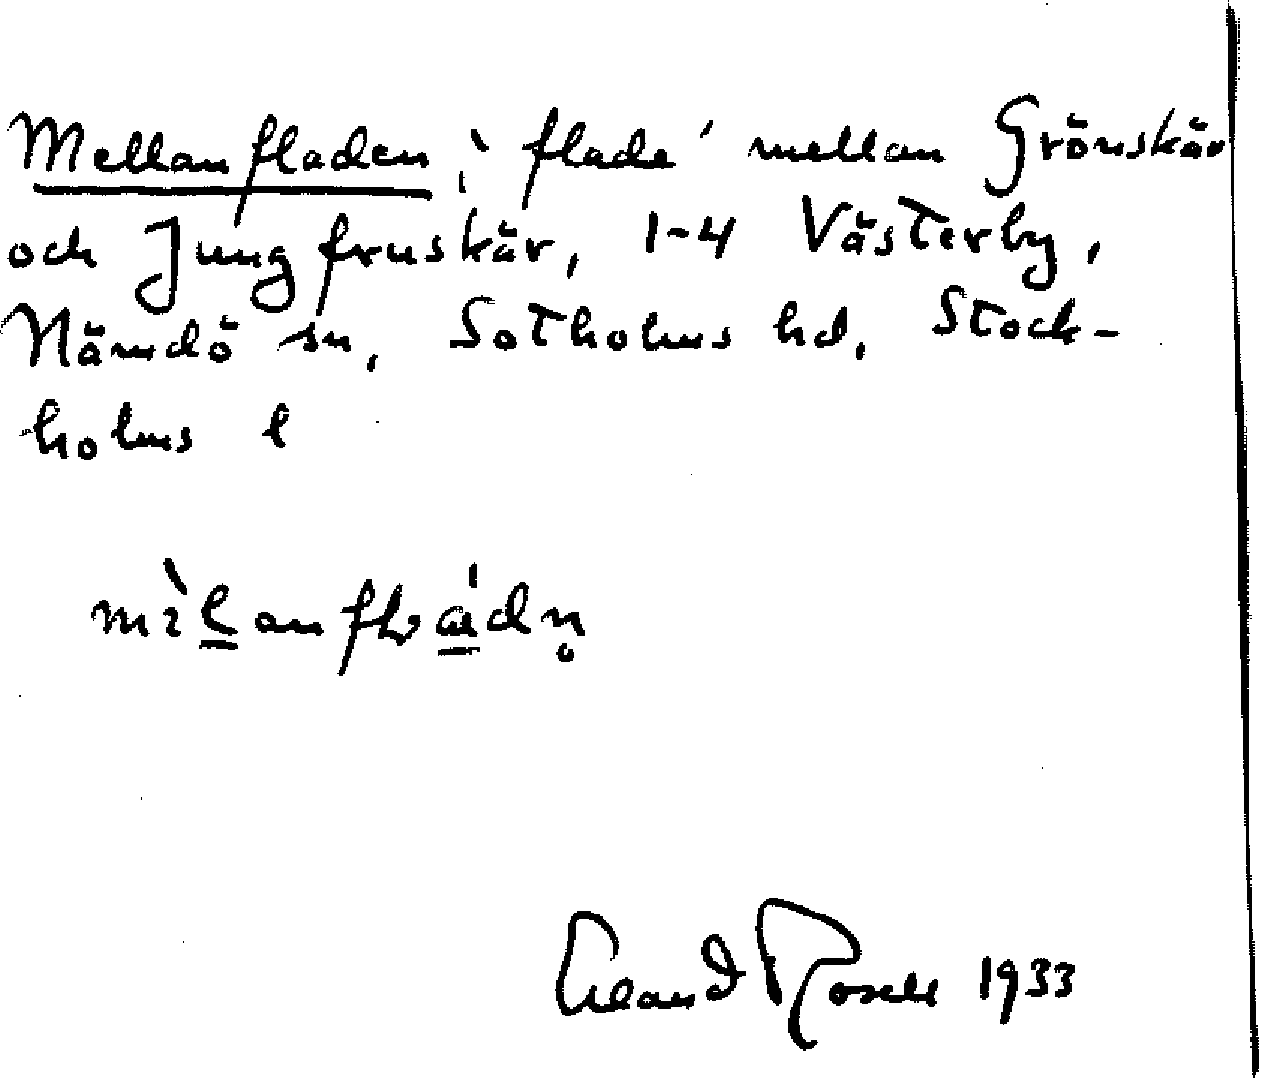 Mellanfladen, 'flade' mellan Grönskär
och Jungfruskär, 1-4 Västerby,
Nämdö sn, Sotholms hd, Stock-
holms l
Erland Rosell 1933